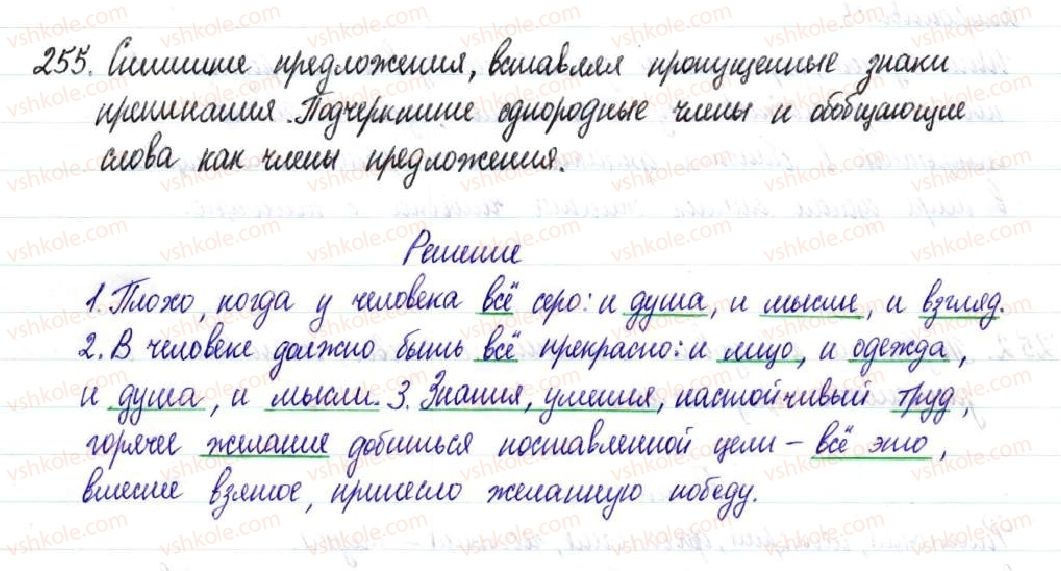 255. Спишите предложения, вставляя пропущенные знаки
препинания. Подчеркните однородные члены и обобщающие
слова как члены предложения.
Решение
1. Плохо, когда у человека всё серо: и душа, и мысли, и взгляд.
2. В человеке должно быть всё прекрасно: и лицо, и одежда,
и душа, и мысли. 3. Знания, умения, настойчивый труд,
горячее желание добиться поставленной цели – всё это,
вместе взятое, принесло желанную победу.
vshkole.com